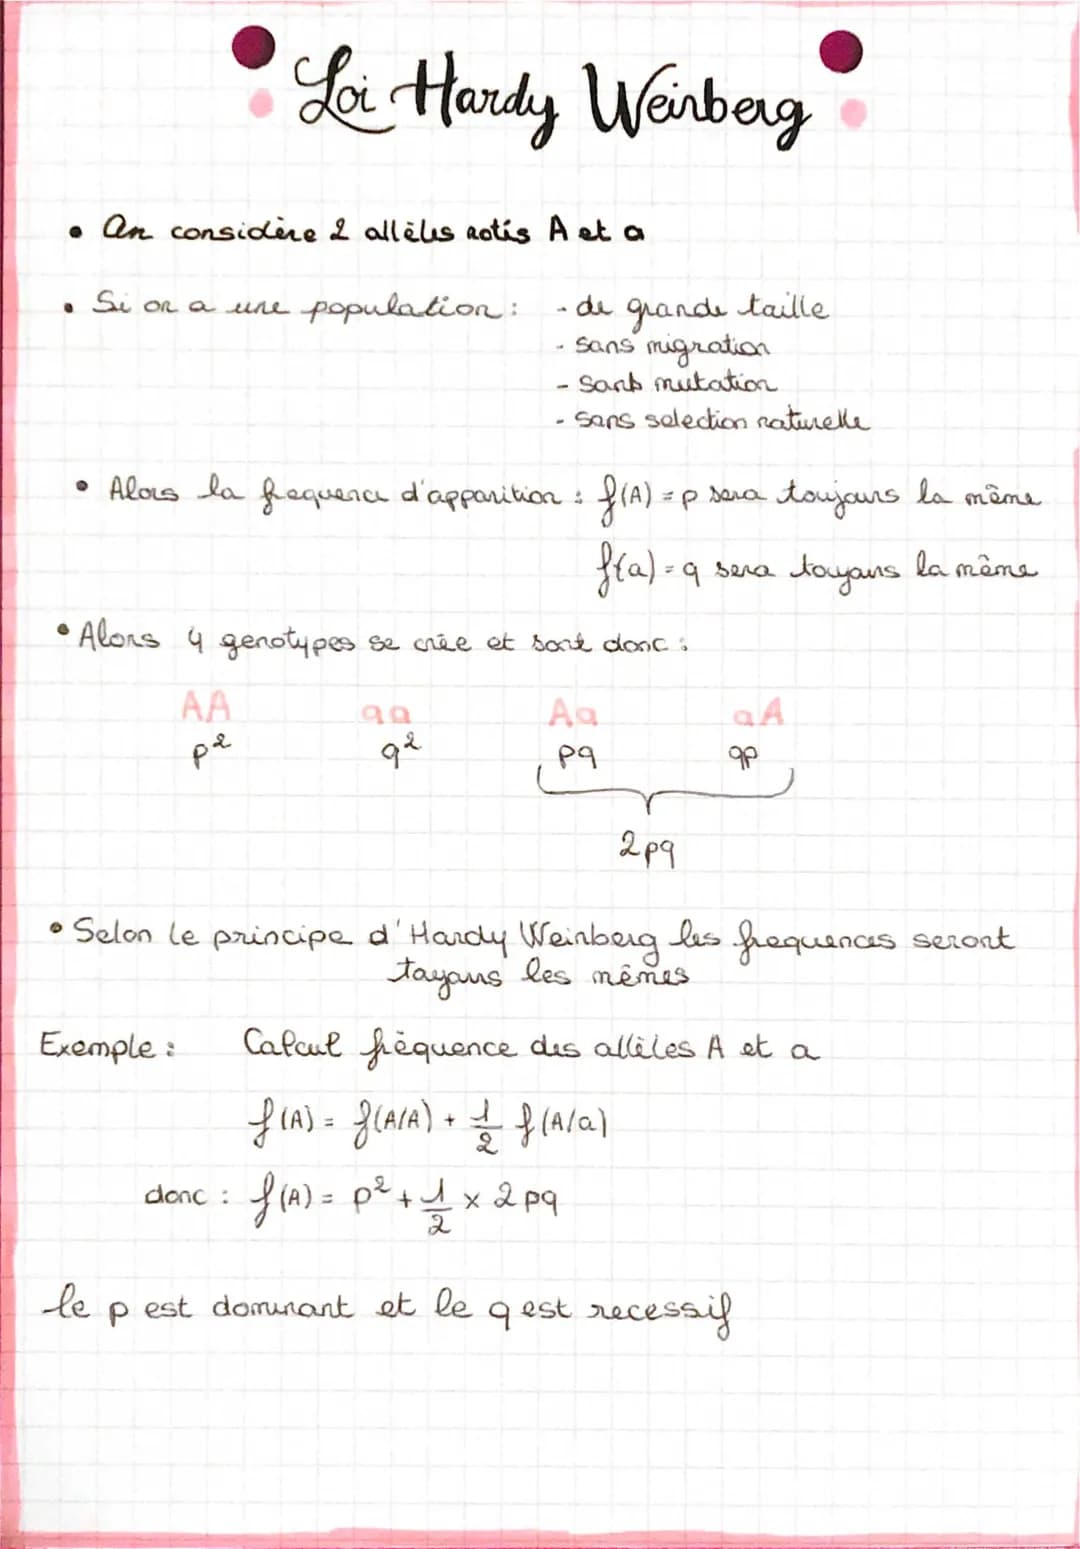 Loi Hardy Weinberg
• On considère 2 allèles notés A et a
• Si on a une population : - de grande taille
- sans migration
- sans mutation
- sans selection naturelle
• Alors la frequence d'apparition : f(A) = p sera toujours la même
f(a) = q sera toujours la même
• Alors 4 genotypes se crée et sont donc :
AA aa Aa aA
p² q² pq qp
2pq
• Selon le principe d'Hardy Weinberg les frequences seront
toujours les mêmes
Exemple : Calcul fréquence des allèles A et a
f(A) = f(A/A) + 1/2 f(A/a)
donc : f(A) = p² + 1/2 x 2pq
le p est dominant et le q est recessif